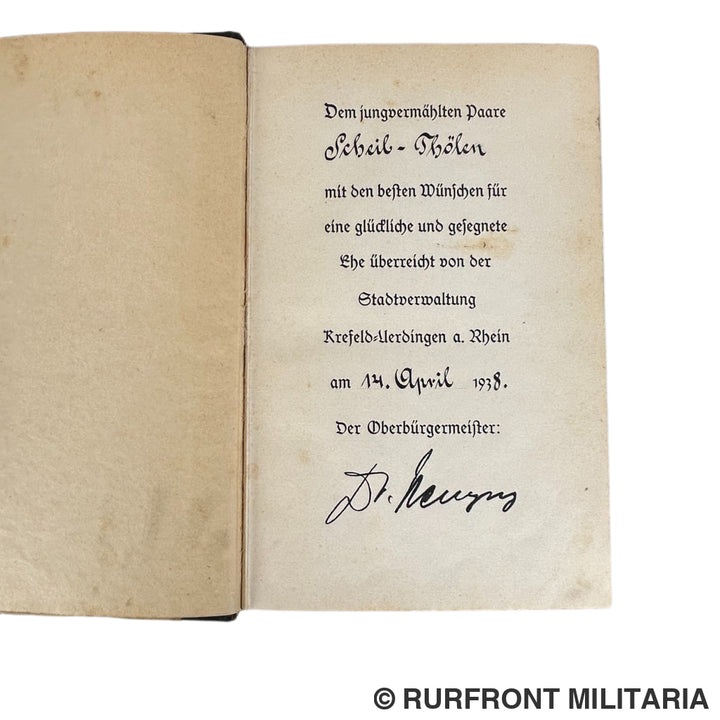 Dem jungvermählten Paare
Scheil - Thölen
mit den besten Wünschen für
eine glückliche und gesegnete
Ehe überreicht von der
Stadtverwaltung
Krefeld-Uerdingen a. Rhein
am 14. April 1938.
Der Oberbürgermeister:
Dr.
© RURFRONT MILITARIA